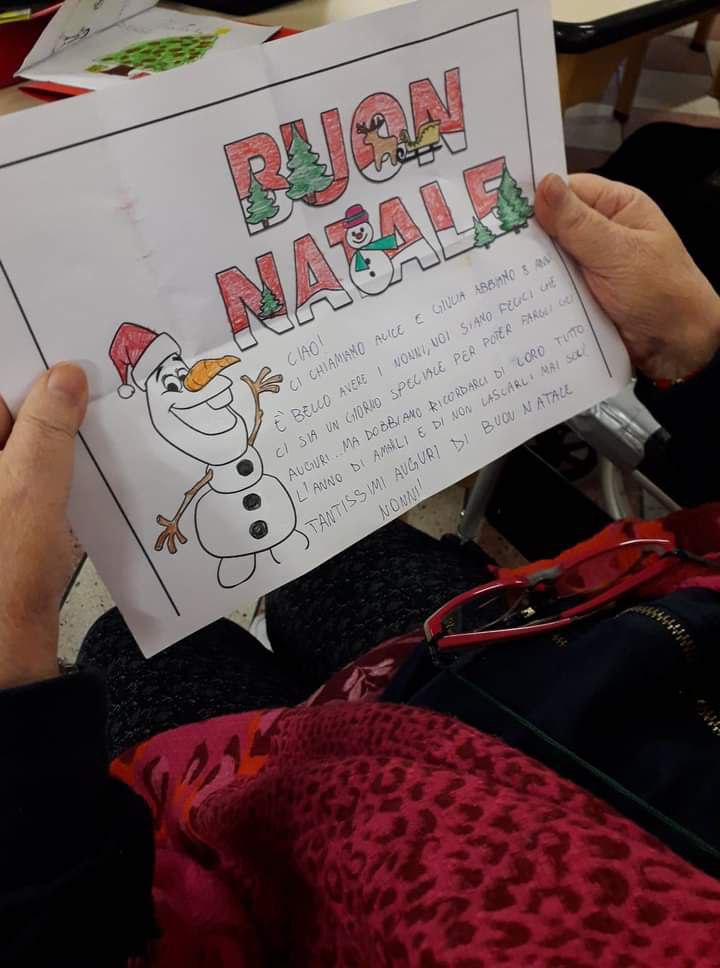 BUON
NATALE
CIAO!
CI CHIAMIAMO ALICE E GIULIA ABBIAMO 8 ANNI
È BELLO AVERE I NONNI, NOI SIAMO FELICI CHE
CI SIA UN GIORNO SPECIALE PER POTER FARGLI GLI
AUGURI... MA DOBBIAMO RICORDARCI DI LORO TUTTO
L'ANNO DI AMARLI E DI NON LASCARLI MAI SOLI!
TANTISSIMI AUGURI DI BUON NATALE
NONNI!